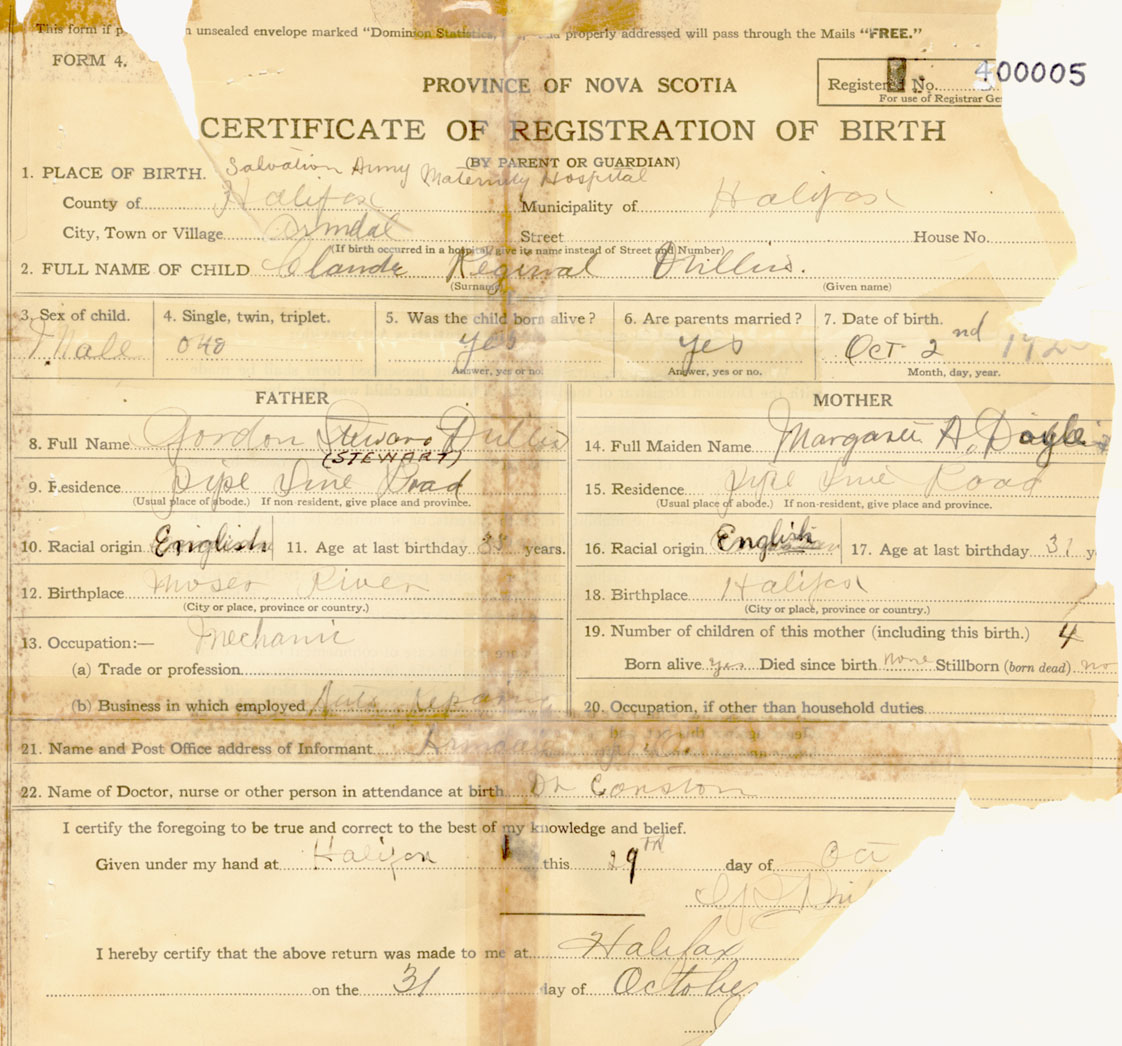 This form if p n unsealed envelope marked "Dominion Statistics, properly addressed will pass through the Mails "FREE."
FORM 4.
PROVINCE OF NOVA SCOTIA
Registered No. 400005
For use of Registrar Ge
CERTIFICATE OF REGISTRATION OF BIRTH
(BY PARENT OR GUARDIAN)
1. PLACE OF BIRTH. Salvation Army Maternity Hospital
County of Halifax Municipality of Halifax
City, Town or Village Armdal Street House No.
(If birth occurred in a hospital, give its name instead of Street and Number)
2. FULL NAME OF CHILD Claude Reginal
(Surname) (Given name)
3. Sex of child. 4. Single, twin, triplet. 5. Was the child born alive? 6. Are parents married? 7. Date of birth.
Male yes yes Oct 2nd 192
Answer, yes or no. Answer, yes or no. Month, day, year.
FATHER MOTHER
8. Full Name Gordon 14. Full Maiden Name Margaret A. Doyle
(STEWART)
9. Residence Pipe Line Road 15. Residence Pipe Line Road
(Usual place of abode.) If non-resident, give place and province. (Usual place of abode.) If non-resident, give place and province.
10. Racial origin English 11. Age at last birthday 35 years. 16. Racial origin English 17. Age at last birthday 31 y
12. Birthplace Moser River 18. Birthplace Halifax
(City or place, province or country.) (City or place, province or country.)
13. Occupation:— Mechanic 19. Number of children of this mother (including this birth.) 4
(a) Trade or profession Born alive yes Died since birth none Stillborn (born dead) no
(b) Business in which employed Auto Repairing 20. Occupation, if other than household duties
21. Name and Post Office address of Informant Armdale
22. Name of Doctor, nurse or other person in attendance at birth Dr
I certify the foregoing to be true and correct to the best of my knowledge and belief.
Given under my hand at Halifax this 29TH day of Oct
I hereby certify that the above return was made to me at Halifax
on the 31 day of October